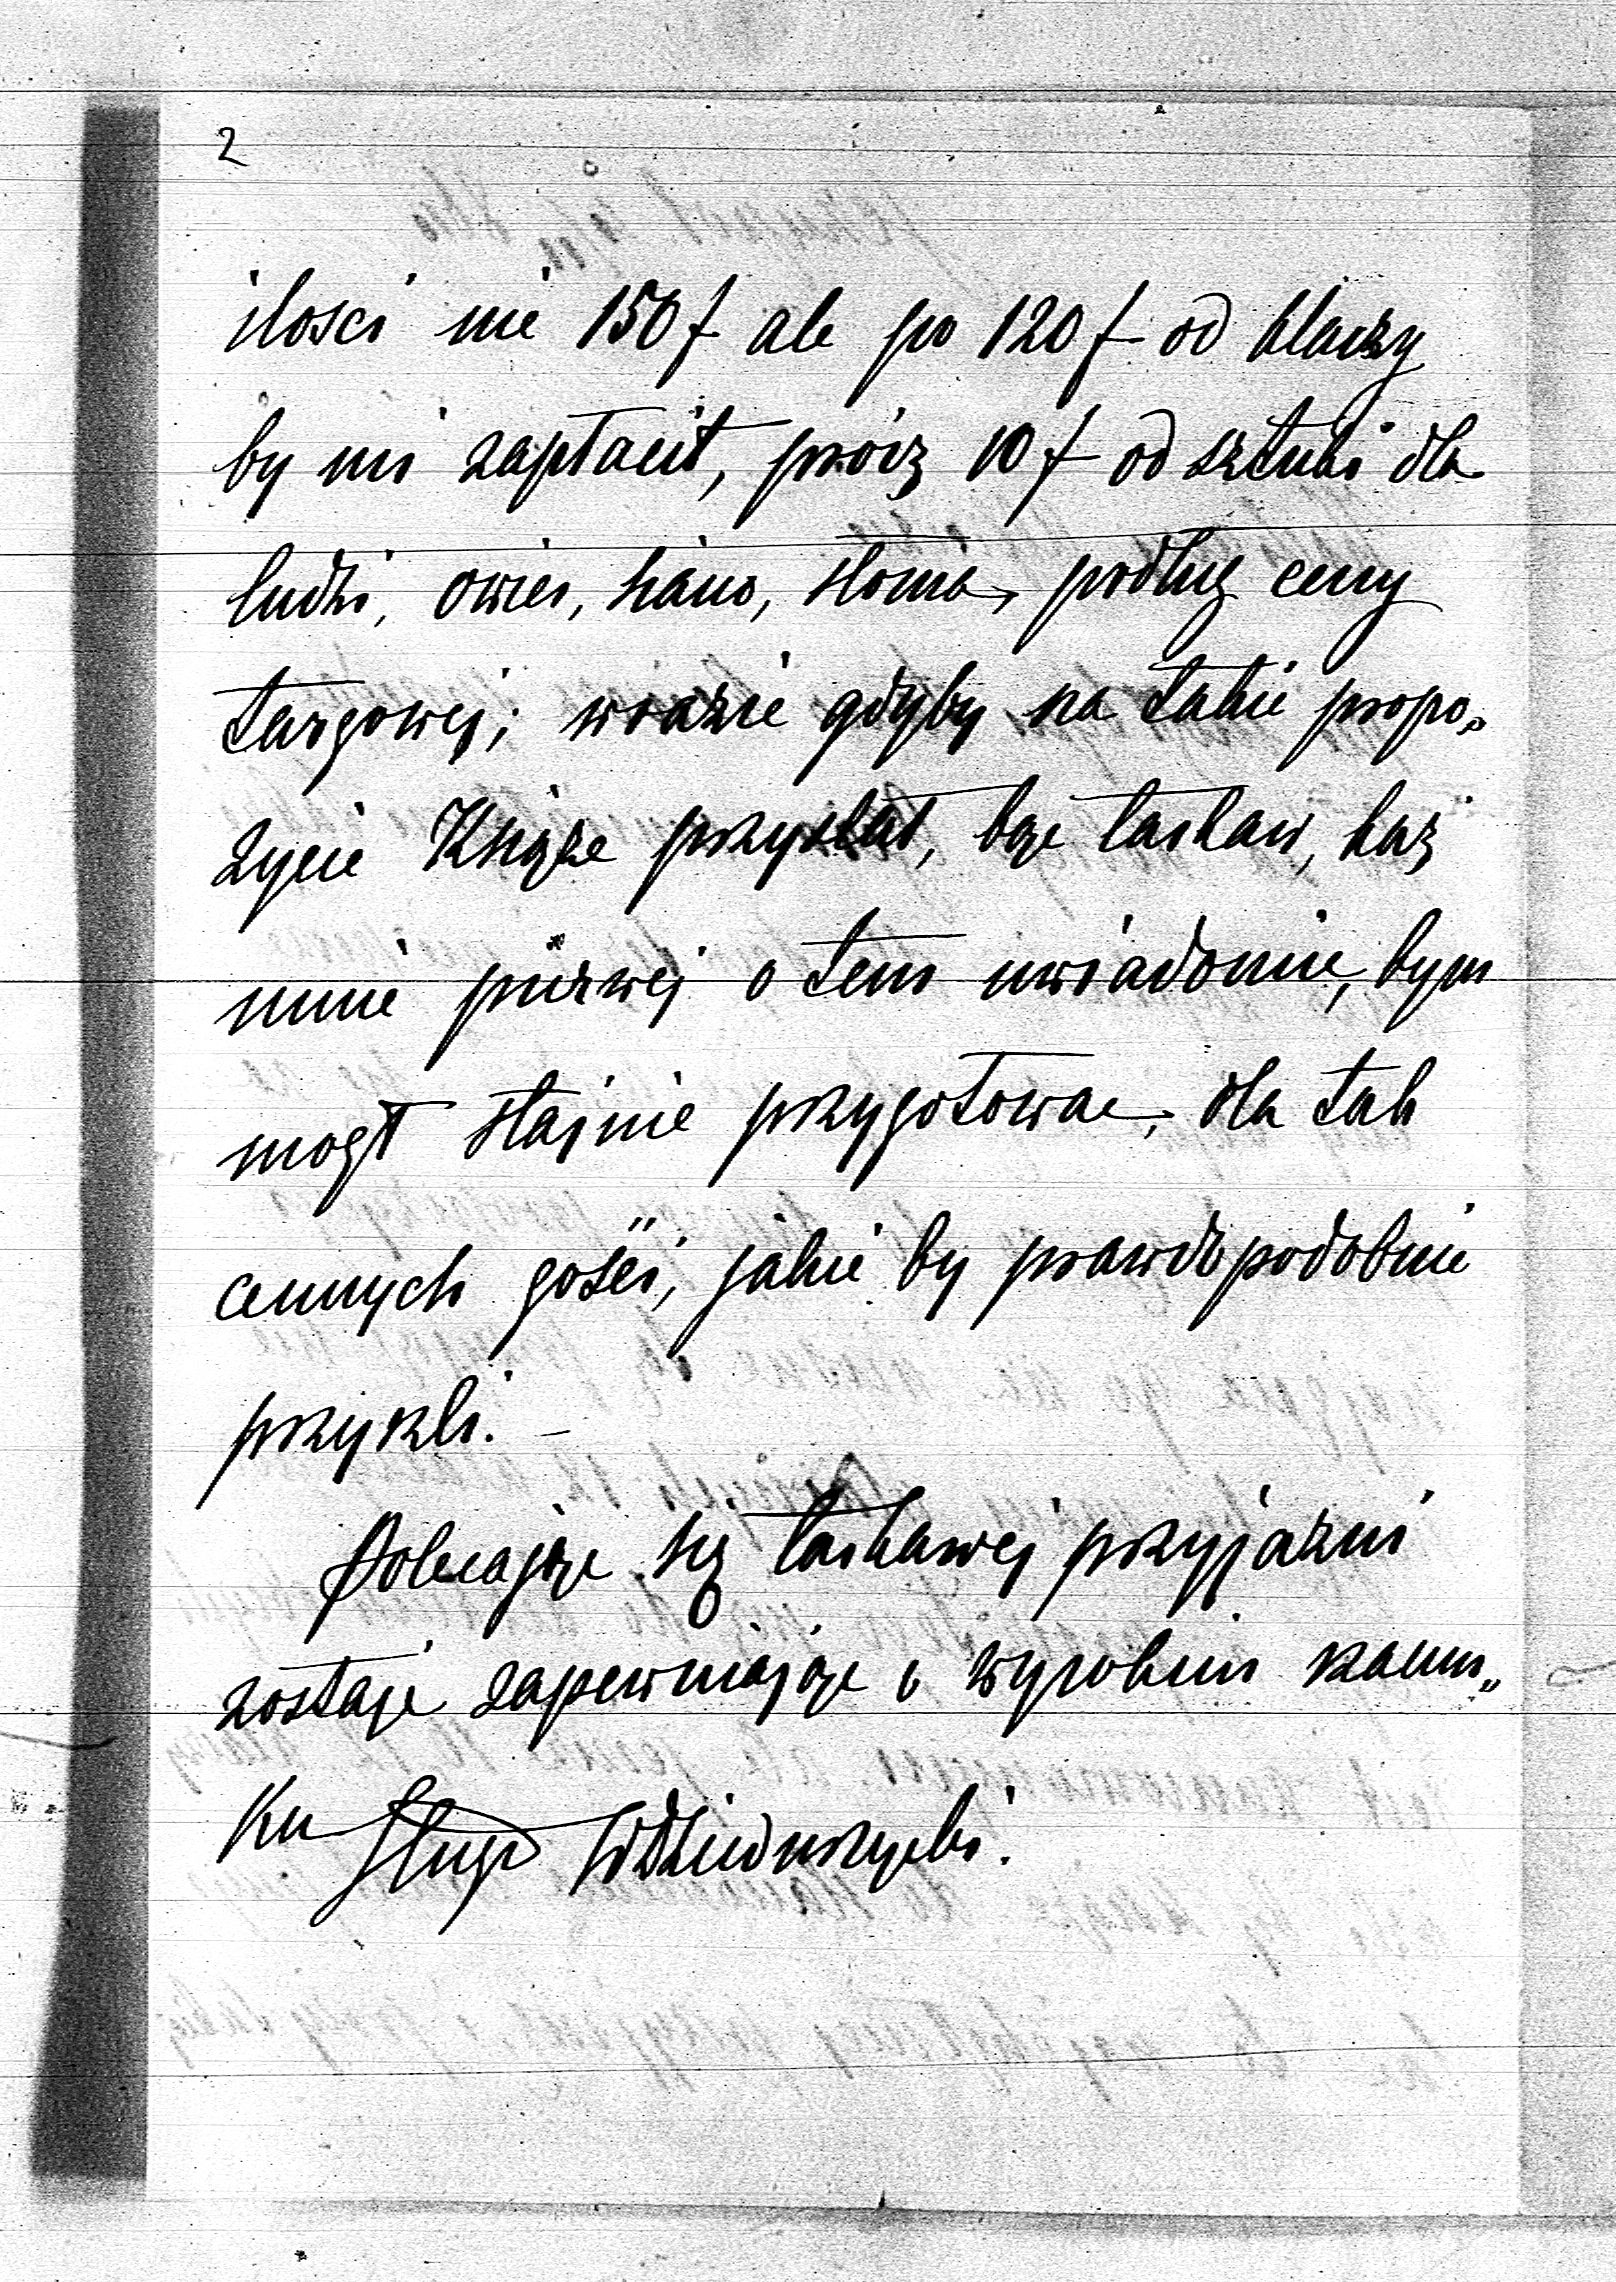 2
ilosci nie 150 f ale po 120 f od klaczy
by mi zapłacił, prócz 10 f od sztuki dla
ludzi, owies, siano, słoma, podług ceny
targowej; w razie gdyby na takie propo„
zycie Książe przystał, bąć łaskaw, każ
mnie pierwej o tem uwiadomic, bym
mogł stajnie przygotowac, dla tak
cennych gości, jakie by prawdopodobnie
przyszli. –
Polecając się łaskawej przyjazni
zostaje zapewniając o wysokim szacun„
ku Sługa WDzieduszycki.